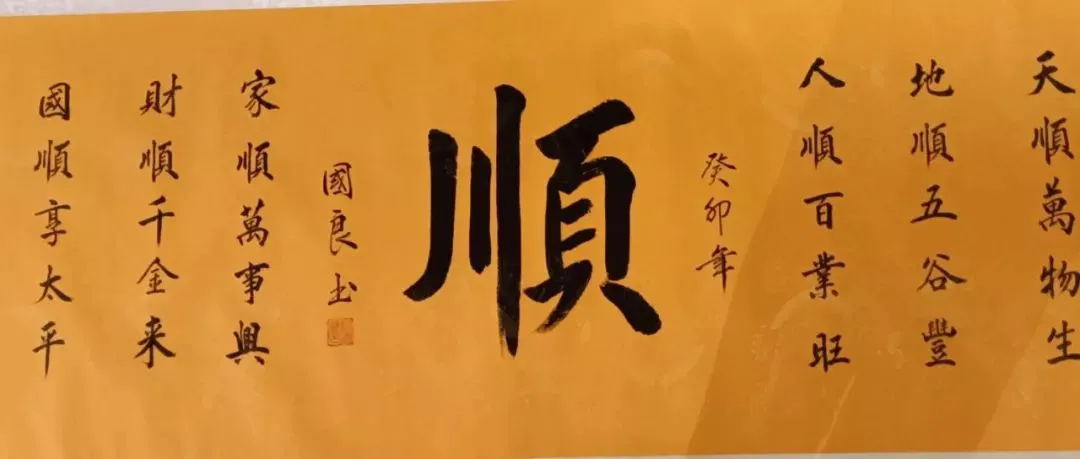 天順萬物生
地順五谷豐
人順百業旺
癸卯年
順
國良玉
家順萬事興
財順千金来
國順享太平